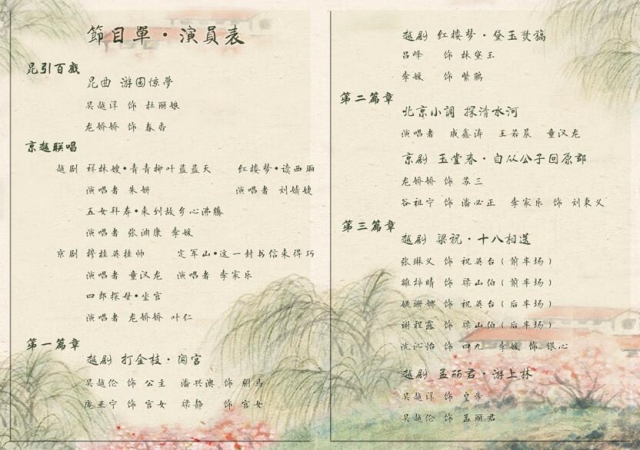 節目單·演員表
昆引百戲
昆曲 游園惊夢
吴越洋 饰 杜丽娘
龙娇娇 饰 春香
京越联唱
越剧 祥林嫂·青青柳叶蓝蓝天 红楼梦·读西厢
演唱者 朱妍 演唱者 刘婧婕
五女拜寿·来到故乡心沸腾
演唱者 张沛康 李媛
京剧 穆桂英挂帅 定军山·这一封书信来得巧
演唱者 童汉龙 演唱者 李家乐
四郎探母·坐宫
演唱者 龙娇娇 叶仁
第一篇章
越剧 打金枝·闯宫
吴越伦 饰 公主 潘兴澳 饰 驸马
亚宁 饰 宫女 梁静 饰 宫女
越剧 红楼梦·黛玉焚稿
吕峰 饰 林黛玉
李媛 饰 紫鹃
第二篇章
北京小調 探清水河
演唱者 戚鑫涛 王若宸 童汉龙
京剧 玉堂春·自从公子回原郡
龙娇娇 饰 苏三
谷祖宁 饰 潘必正 李家乐 饰 刘秉义
第三篇章
越剧 梁祝·十八相送
张琳义 饰 祝英台(前半场)
晴 饰 梁山伯(前半场)
姚珊娜 饰 祝英台(后半场)
谢程露 饰 梁山伯(后半场)
沈沁怡 饰 四九 李媛 饰 银心
越剧 孟丽君·游上林
吴越洋 饰 皇帝
吴越伦 饰 孟丽君